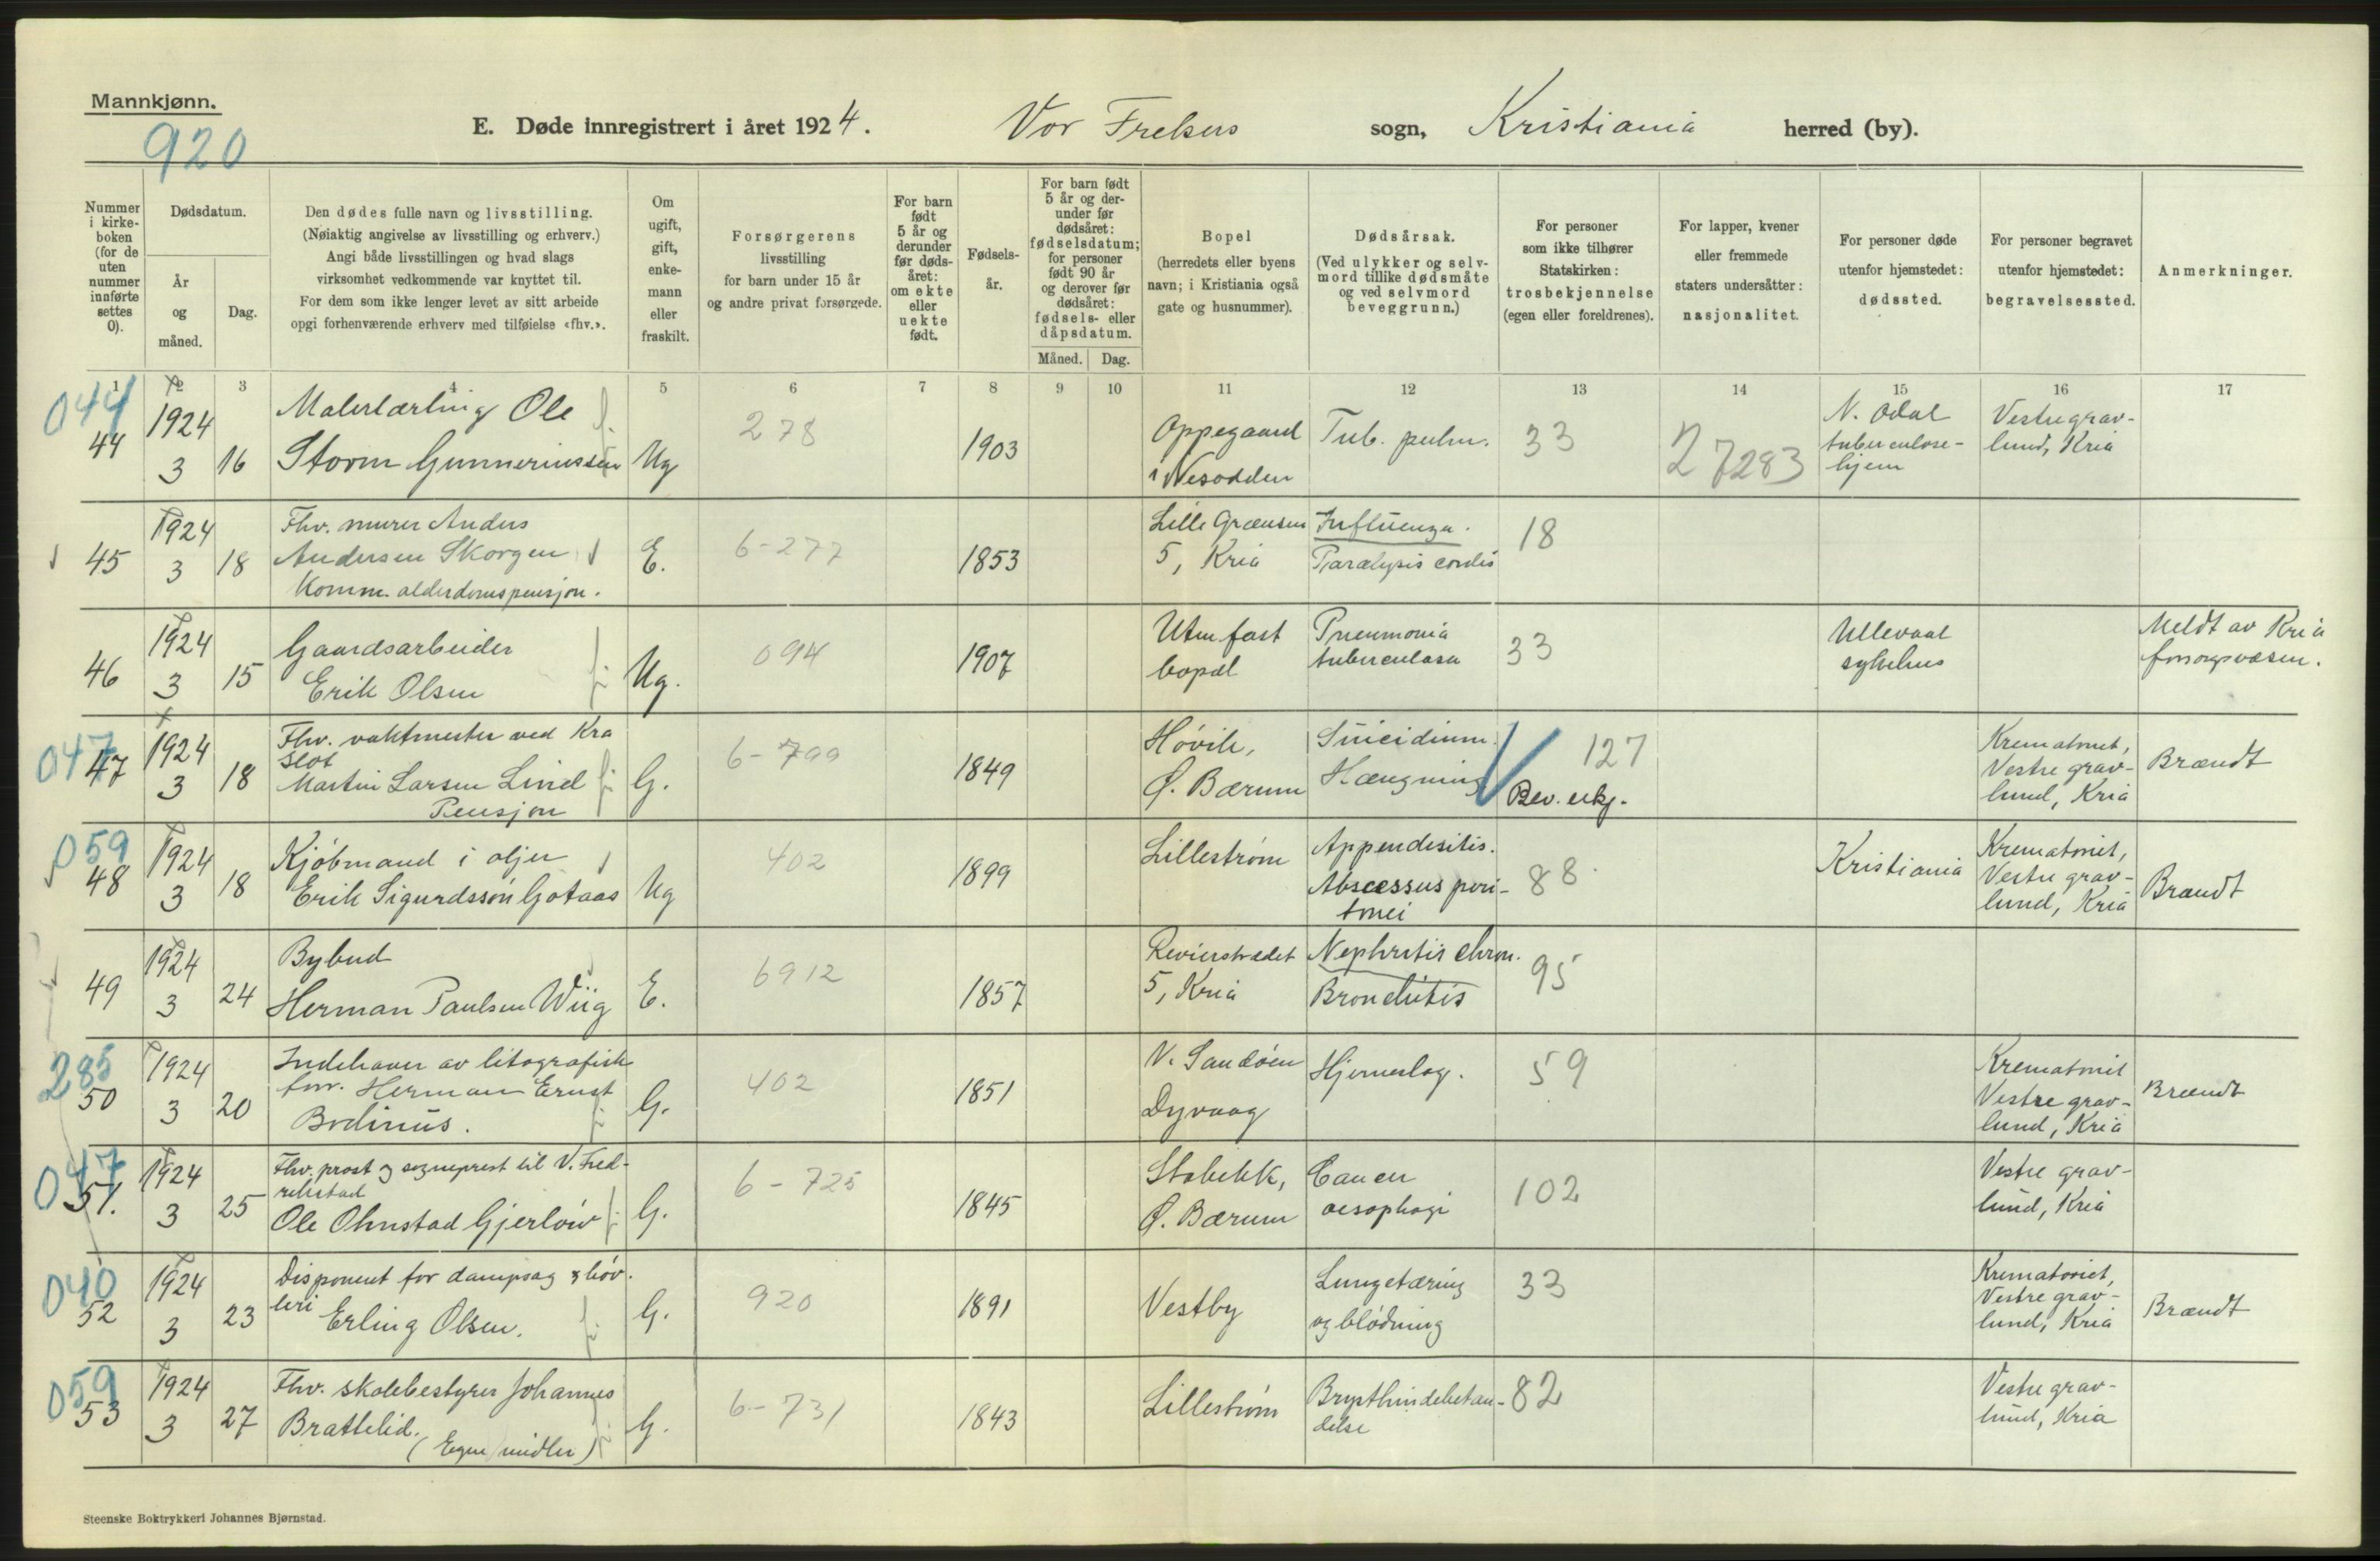 Mannkjønn.
920
E. Døde innregistrert i året 1924. Vor Frelsers sogn, Kristiania herred (by).
Nummer i kirkeboken (for de uten nummer innførte settes 0).
Dødsdatum.
År og måned.
Dag.
Den dødes fulle navn og livsstilling.
(Nøiaktig angivelse av livsstilling og erhverv.)
Angi både livsstillingen og hvad slags
virksomhet vedkommende var knyttet til.
For dem som ikke lenger levet av sitt arbeide
opgi forhenværende erhverv med tilføielse «fhv.».
Om ugift, gift, enkemann eller fraskilt.
Forsørgerens
livsstilling
for barn under 15 år
og andre privat forsørgede.
For barn født 5 år og derunder før dødsåret: om ekte eller uekte født.
Fødselsår.
For barn født 5 år og derunder før dødsåret: fødselsdatum; for personer født 90 år og derover før dødsåret: fødsels- eller dåpsdatum.
Måned. Dag.
Bopel
(herredets eller byens
navn; i Kristiania også
gate og husnummer).
Dødsårsak.
(Ved ulykker og selvmord tillike dødsmåte
og ved selvmord
beveggrunn.)
For personer
som ikke tilhører
Statskirken:
trosbekjennelse
(egen eller foreldrenes).
For lapper, kvener
eller fremmede
staters undersåtter:
nasjonalitet.
For personer døde
utenfor hjemstedet:
dødssted.
For personer begravet
utenfor hjemstedet:
begravelsessted.
Anmerkninger.
1 2 3 4 5 6 7 8 9 10 11 12 13 14 15 16 17
044
44 1924 3 16 Malerlærling Ole
Storm Gunneriussen Ug 278 1903 Oppegaard
i Nesodden Tub. pulm. 33 27283 N. Odal
tuberculose-
hjem Vestre grav-
lund, Kria
45 1924 3 18 Fhv. murer Anders
Andersen Skorgen
Komm. alderdomspensjon. E. 6-277 1853 Lille Grænsen
5, Kria Influenza.
Paralysis cordis 18
46 1924 3 15 Gaardsarbeider
Erik Olsen Ug. 094 1907 Uten fast
bopæl Pneumonia
tuberculosa 33 Ullevaal
sykehus Meldt av Kria
forsorgsvæsen.
047
47 1924 3 18 Fhv. vaktmester ved Kra
Slot
Martin Larsen Lind
Pensjon G. 6-799 1849 Høvik,
Ø. Bærum Suicidium.
Hængning 127
Bev. ukj. Krematoriet,
Vestre grav-
lund, Kria Brændt
059
48 1924 3 18 Kjøbmand i oljer
Erik Sigurdssøn Gotaas Ug 402 1899 Lillestrøm Appendesitis.
Abscessus peri-
tonei 88 Kristiania Krematoriet,
Vestre grav-
lund, Kria Brændt
49 1924 3 24 Bybud
Herman Paulsen Wiig E. 6912 1857 Revierstrædet
5, Kria Nephritis chron.
Bronchitis 95
285
50 1924 3 20 Indehaver av litografisk
forr. Herman Ernst
Bodinus. G. 402 1851 V. Sandøen
Dyvaag Hjerneslag. 59 Krematoriet
Vestre grav-
lund, Kria Brændt
047
51. 1924 3 25 Fhv. prost og sogneprest til V. Fred-
rikstad
Ole Ohnstad Gjerløw G. 6-725 1845 Stabekk,
Ø. Bærum Cancer
oesophagi 102 Vestre grav-
lund, Kria
040
52 1924 3 23 Disponent for dampsag & høv-
leri Erling Olsen. G. 920 1891 Vestby Lungetæring
og blødning 33 Krematoriet,
Vestre grav-
lund, Kria Brændt
059
53 1924 3 27 Fhv. skolebestyrer Johannes
Brattelid.
(Egne midler) G. 6-731 1843 Lillestrøm Brysthindebetæn-
delse 82 Vestre grav-
lund, Kria
Steenske Boktrykkeri Johannes Bjørnstad.